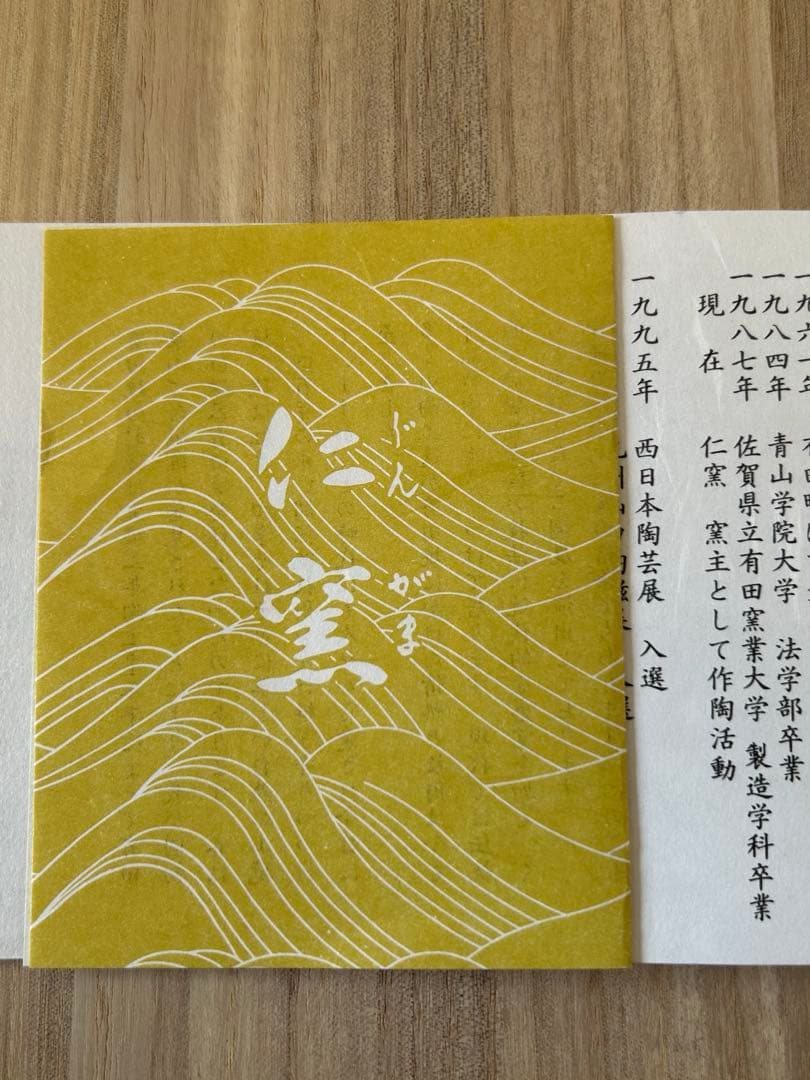 仁窯
じんがま
一九八四年 青山学院大学 法学部卒業
一九八七年 佐賀県立有田窯業大学 製造学科卒業
現在 仁窯 窯主として作陶活動
一九九五年 西日本陶芸展 入選